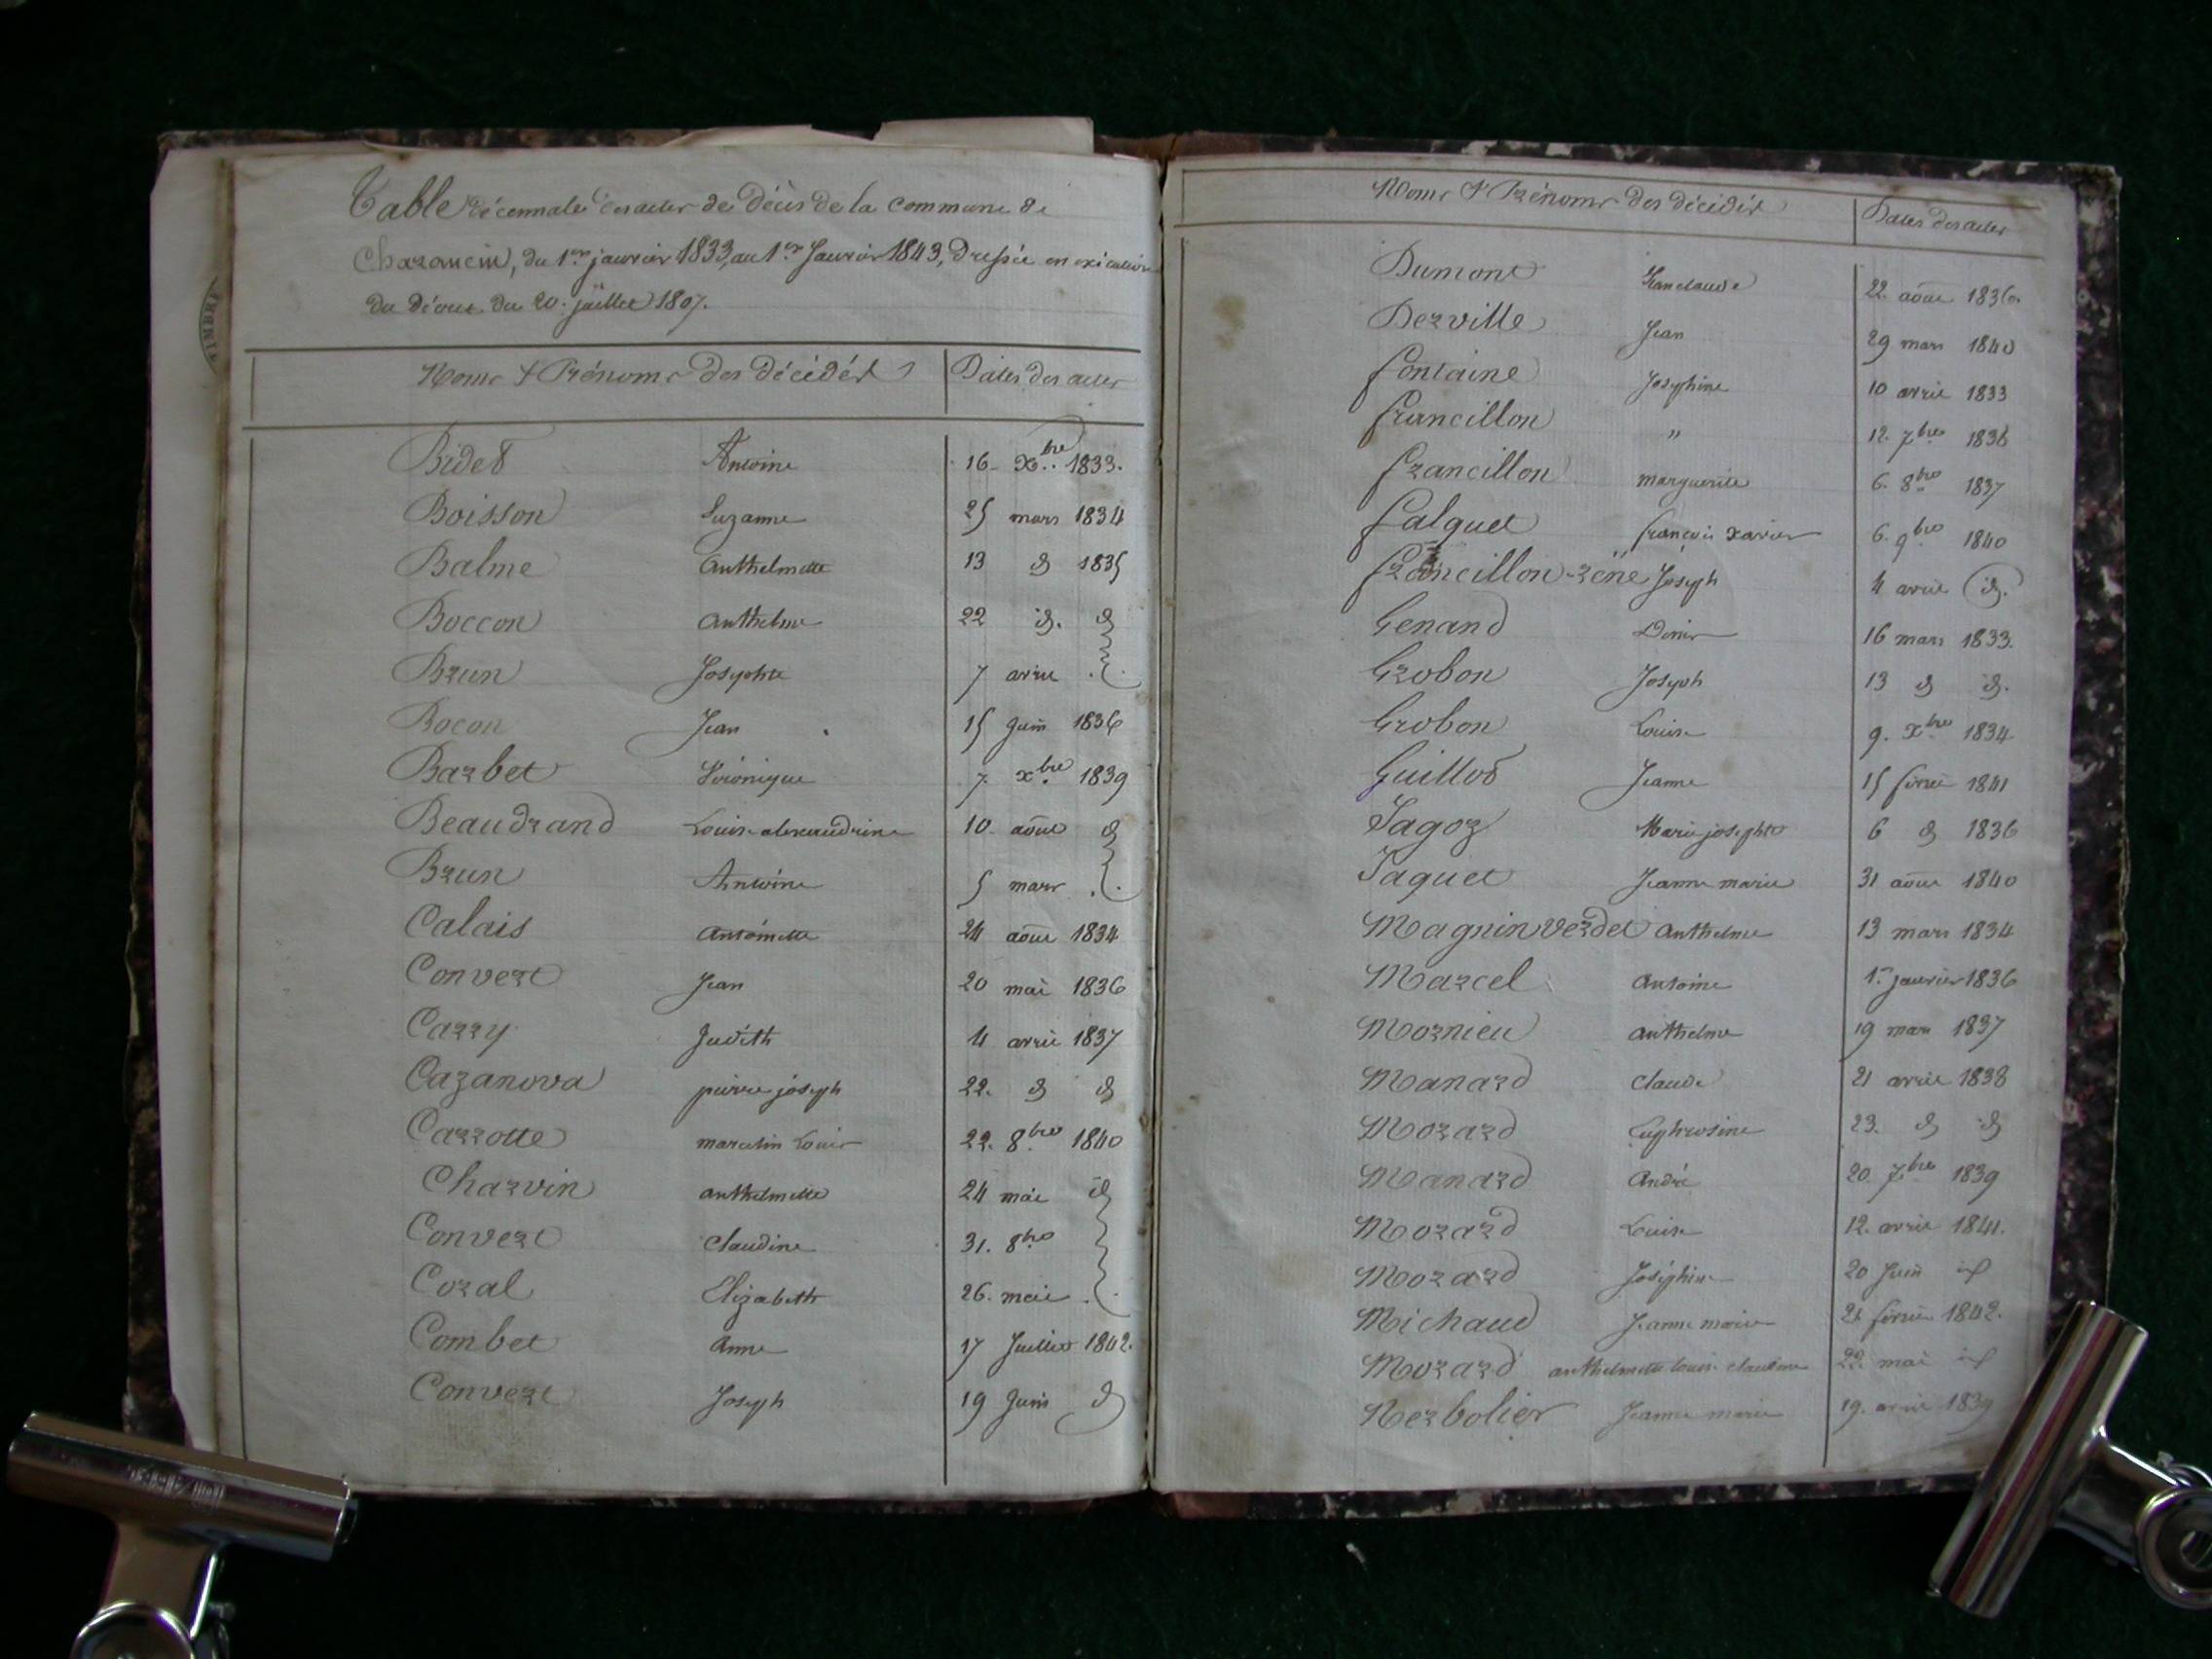 Table décennale des actes de décès de la commune de
Chazancin, du 1er janvier 1833, au 1er Janvier 1843, Dressée en exécution
du décret du 20 juillet 1807.
Noms & Prénoms des décédés Dates des actes
Bidet Antoine 16 Xbre 1833.
Boisson Suzanne 25 mars 1834
Balme Anthelmette 13 d 1835
Boccon Anthelme 22 id. d
Brun Josephte 7 avril
Bocon Jean 15 Juin 1836
Barbet Véronique 7. Xbre 1839
Beaudrand Louise alexandrine 10 août d
Brun Antoine 5 mars
Calais Antoinette 24 août 1834
Convert Jean 20 mai 1836
Carry Judith 4 avril 1837
Cazanova pierre joseph 22. d d
Carrotte marcelin Louis 22. 8bre 1840
Charvin anthelmette 24 mai id
Convert Claudine 31. 8bre
Coral Elizabeth 26. mai
Combet Anne 17 Juillet 1842.
Convert Joseph 19 Juin d
TIMBRE
Noms & Prénoms des décédés Dates des actes
Dumont Jean claude 22. août 1836.
Derville Jean 29 mars 1840
fontaine Josephine 10 avril 1833
francillon " 12. 7bre 1836
francillon marguerite 6. 8bre 1837
falquet françois xavier 6. 9bre 1840
francillon-réné Joseph 4 avril id.
Genand Denis 16 mars 1833.
Grobon Joseph 13 d d.
Grobon Louise 9. Xbre 1834
Guillot Jeanne 15 février 1841
Jagoz Marie josephte 6 d 1836
Jaquet Jeanne marie 31 août 1840
Magnin verdet Anthelme 13 mars 1834
Marcel Antoine 1er janvier 1836
Mornieu Anthelme 19 mars 1837
Manard Claude 21 avril 1838
Morard Euphrosine 23. d d
Manard André 20 7bre 1839
Morard Louise 12. avril 1841.
Morard Joséphine 20 Juin id
Michaud Jeanne marie 21 février 1842.
Morard anthelmette louise claudine 22. mai id
Nerbolier Jeanne marie 19. avril 1839